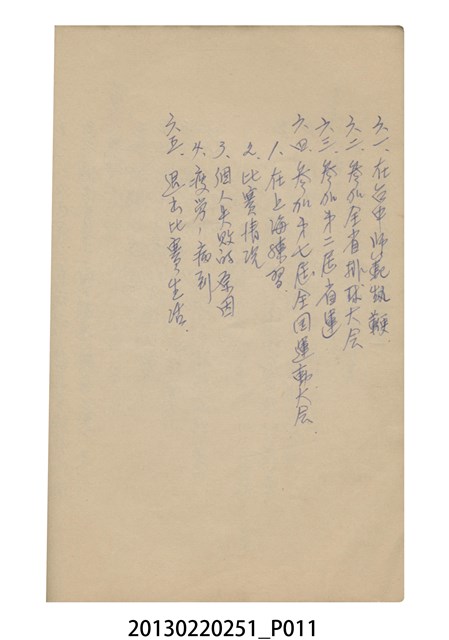 六一、在台中師範執鞭
六二、參加全省排球大会
六三、參加第二屆省運
六四、參加第七屆全国運動大会
1、在上海練習.
2、比賽情況
3、個人失敗的原因
4、疲労，病到
六五、退去比賽生活.
20130220251_P011